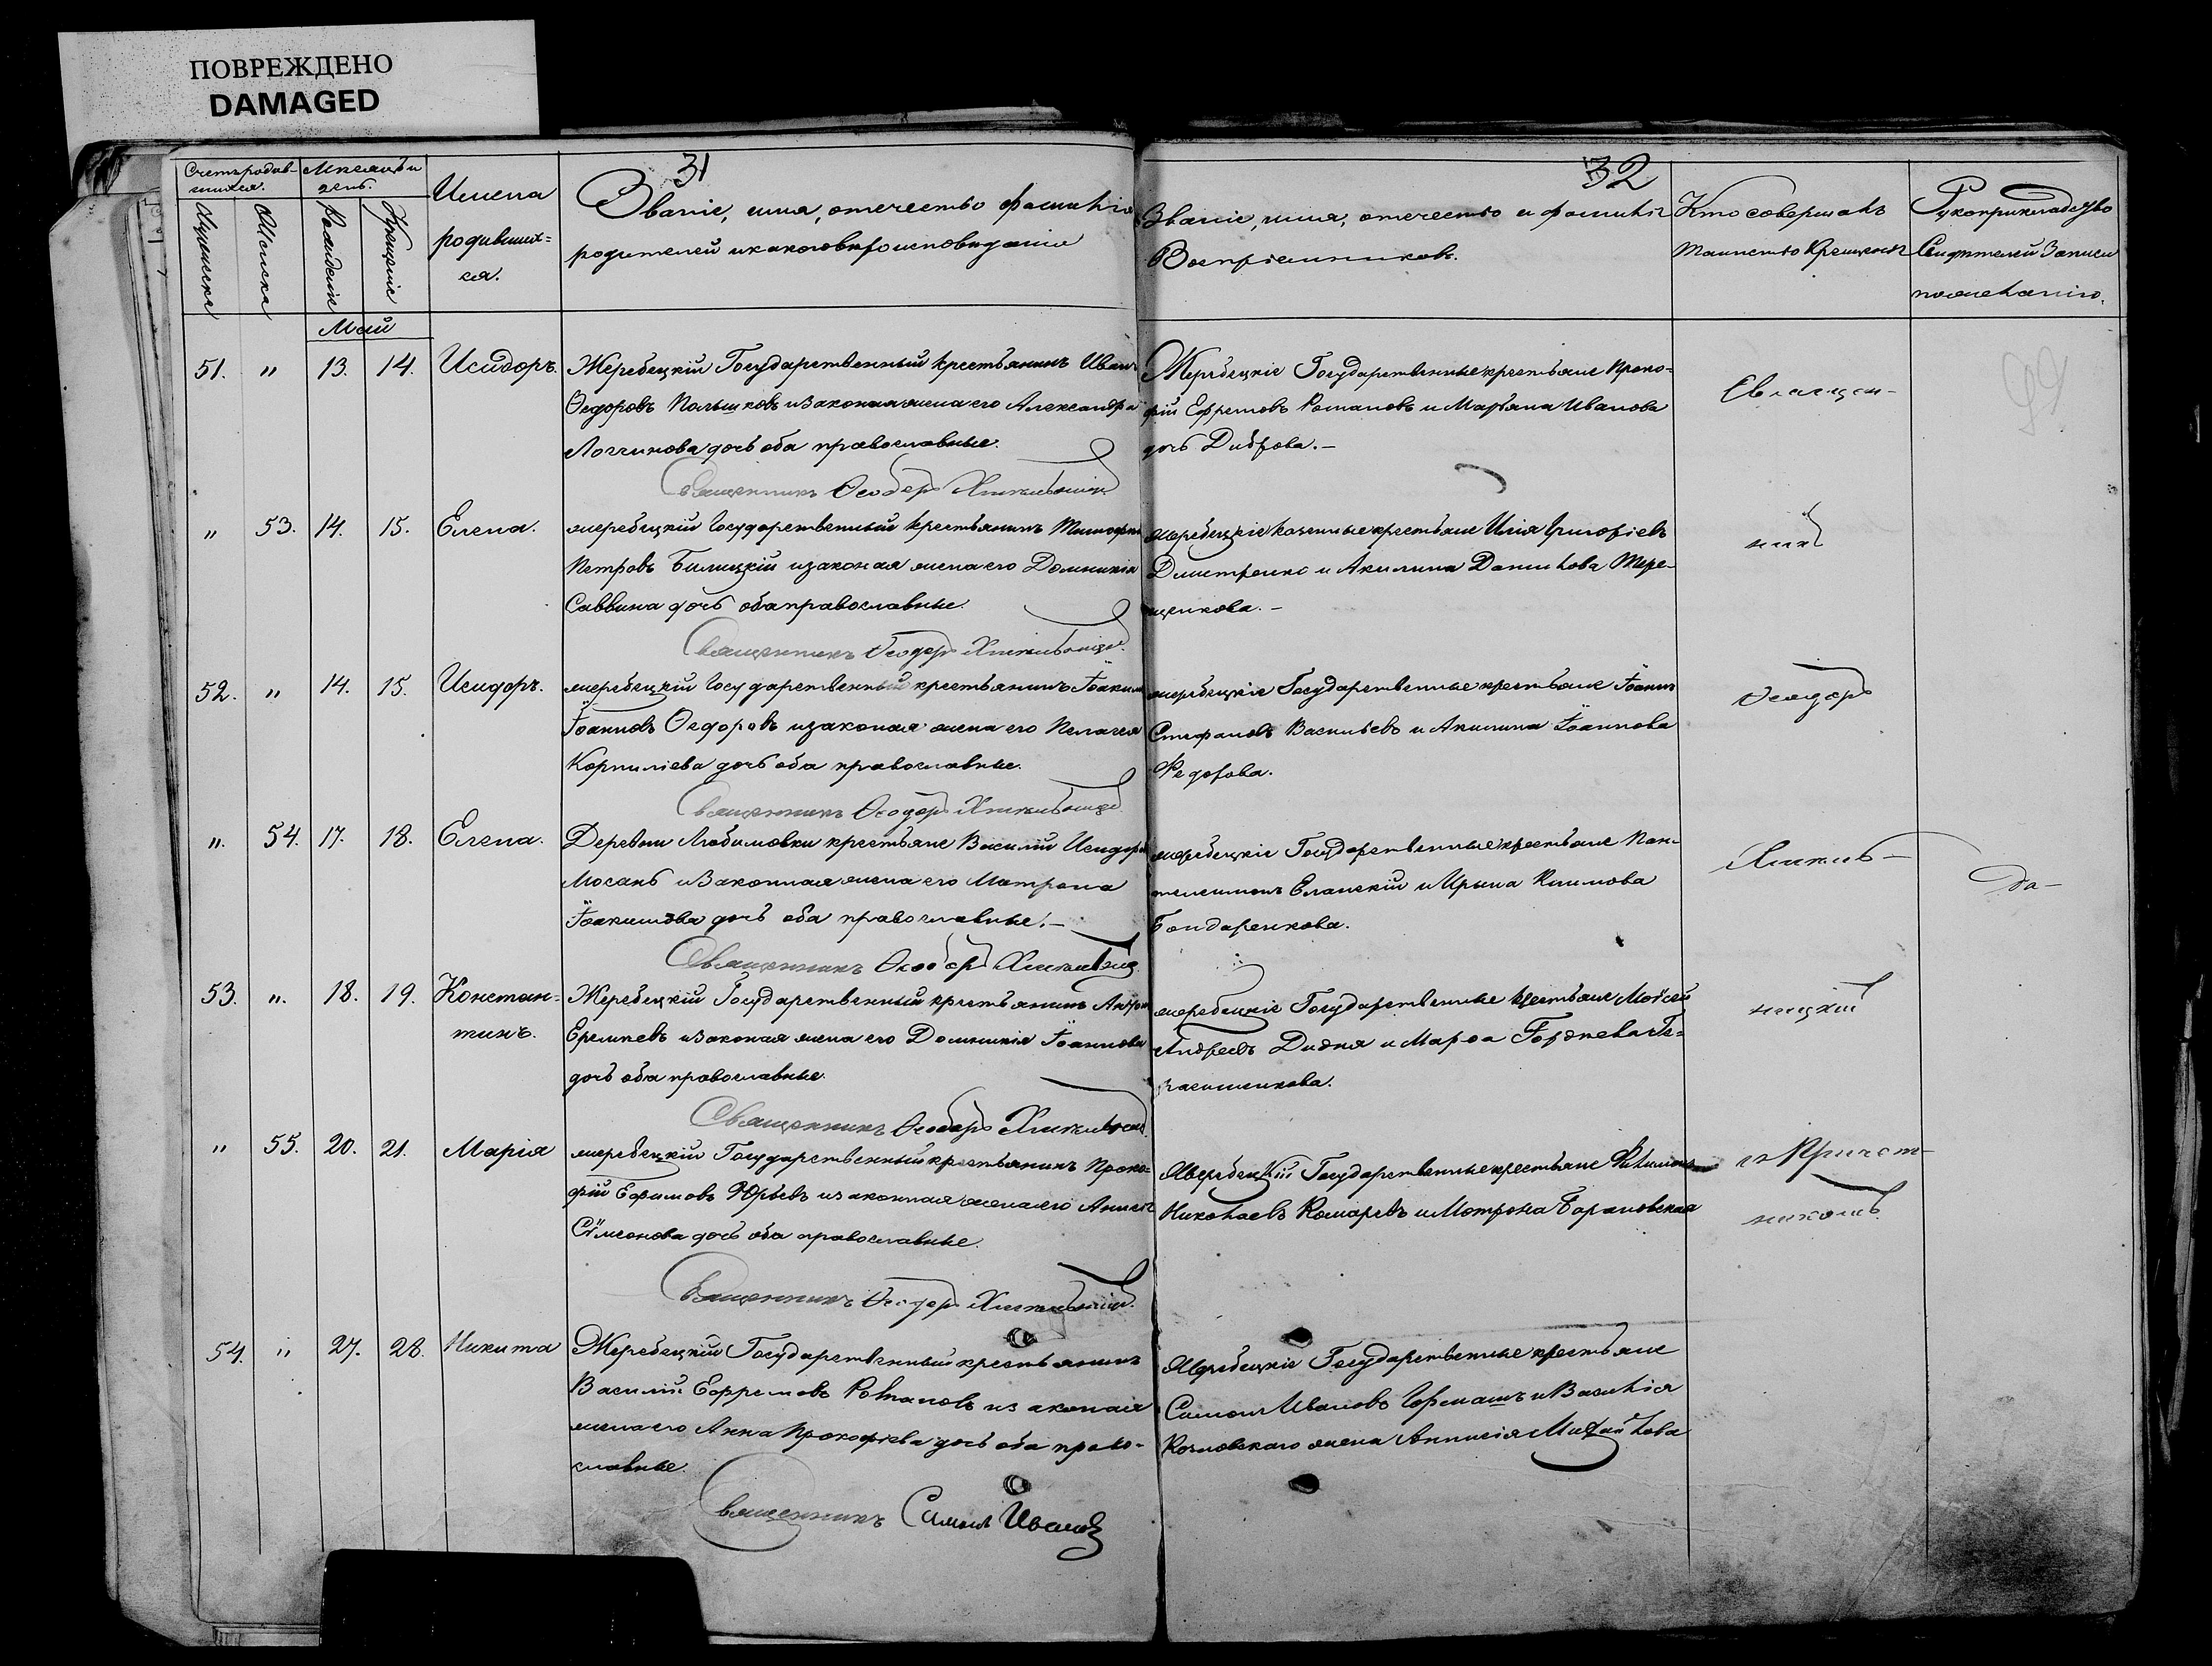 ПОВРЕЖДЕНО
DAMAGED
31
32
Счетъ родив-
шихся.
Мѣсяцъ и
день.
Имена
родивших=
ся.
Званіе, имя, отечество фамилія
родителей и какого вѣроисповѣданія
Званіе, имя, отечество и фамилія
Воспріемниковъ.
Кто совершалъ
таинство Крещенія
Рукоприкладство
Свидѣтелей Записи
по желанію.
Мужеска
Женска
Рожденіе
Крещеніе
Май
51. " 13. 14. Исидоръ.
Жеребецкій Государственный крестьянинъ Иванъ
Ѳедоровъ Польшковъ и законая жена его Александра
Логгинова дочь оба православные.
Священникъ Ѳеодоръ
Жеребецкіе Государственные крестьяне Проко=
фій Ефремовъ Романовъ и Марьяна Иванова
дочь Диброва.—
" 53. 14. 15. Елена.
жеребецкій Государственный крестьянинъ Тимофей
Петровъ Билицкій и законая жена его Домникія
Саввина дочь оба православные.
Священникъ Ѳеодоръ
жеребецкіе казенные крестьяне Илія Григоріевъ
Дмитренко и Акилина Данилова Тере-
щенкова.—
52. " 14. 15. Исидоръ.
жеребецкій Государственный крестьянинъ Іоакимъ
Іоанновъ Ѳедоровъ и законая жена его Пелагея
Корниліева дочь оба православные.
Священникъ Ѳеодоръ
жеребецкіе Государственные крестьяне Іоаннъ
Стефановъ Васильевъ и Акилина Іоаннова
Федорова.
". 54. 17. 18. Елена.
Деревни Любимовки крестьяне Василій Исидоровъ
Мосанъ и законная жена его Матрона
Іоакимова дочь оба православные.—
Священникъ Ѳеодоръ
жеребецкіе Государственные крестьяне Пан-
телеимонъ Еланскій и Ирына Климова
Бондаренкова.
53. ". 18. 19. Констан-
тинъ.
Жеребецкій Государственный крестьянинъ
Еремѣевъ и законая жена его Домникія Іоаннова
дочь оба православные.
Священникъ Ѳеодоръ
жеребецкіе Государственные крестьяне Моѵсей
Андреевъ Дидня и Марѳа Гордѣева Ге=
расименкова.
" 55. 20. 21. Марія
жеребецкій Государственный крестьянинъ Проко=
фій Ефимовъ Юрьевъ и законная жена его
Сѵмеонова дочь оба православные.
Священникъ Ѳеодоръ
Жеребецкій Государственные крестьяне Филимонъ
Николаевъ Комаревъ и Мотрона Барановская
54. " 27. 28. Никита
Жеребецкій Государственный крестьянинъ
Василій Ефремовъ Романовъ и законая
жена его Анна Прокофіева дочь оба право-
славные.
Священникъ Симонъ Ивановъ
Жеребецкіе Государственные крестьяне
Симонъ Ивановъ и Василія
Козловскаго жена Аннисія Михайлова
Священ-
никъ
Ѳеодоръ
Хмель-
ницкій
съ Причет-
никомъ
да-